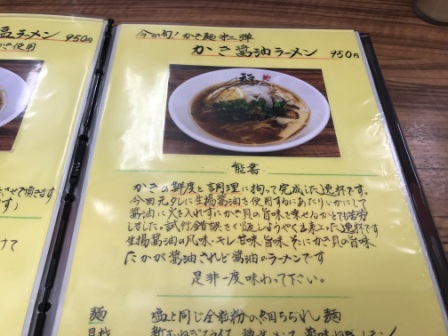 塩ラーメン 950円
使用
今が旬！かき麺第二弾
かき醤油ラーメン 950円
福
能書
かきの鮮度と調理に拘って完成した逸杯です。
今回元タレに生揚醤油を使用するにあたりいかにして
醤油に火を入れずにかき貝の旨味を乗せるかとても苦労
しました。試行錯誤をくり返しようやく出来上った逸杯です
生揚醤油の風味、キレ、甘味、旨味、そしてかき貝の旨味、
たかが醤油されど醤油のラーメンです
是非一度味わって下さい。
麺 塩と同じ全粒粉の細ちぢれ麺